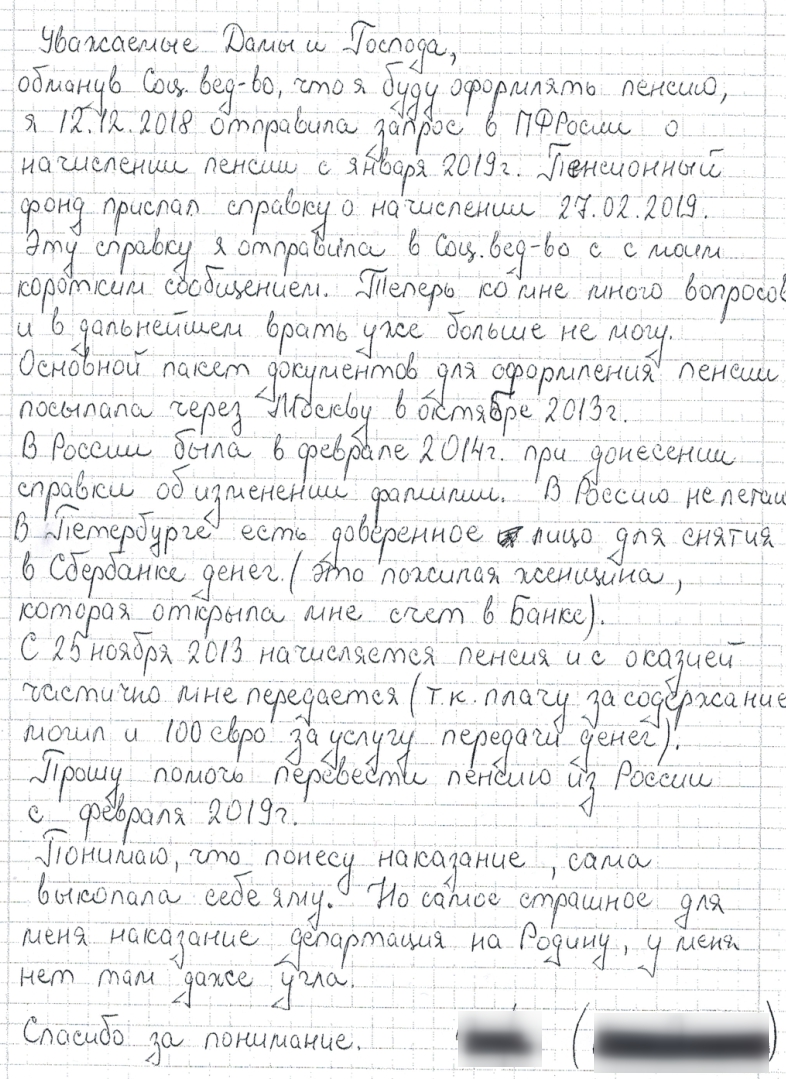 Уважаемые Дамы и Господа,
обманув Соц. вед-во, что я буду оформлять пенсию,
я 12.12.2018 отправила запрос в ПФРосии о
начислении пенсии с января 2019г. Пенсионный
фонд прислал справку о начислении 27.02.2019.
Эту справку я отправила в Соц.вед-во с с моим
коротким сообщением. Теперь ко мне много вопросов
и в дальнейшем врать уже больше не могу.
Основной пакет документов для оформления пенсии
посылала через Москву в октябре 2013г.
В России была в феврале 2014г. при донесении
справки об изменении фамилии. В Россию не летаю
В Петербурге есть доверенное лицо для снятия
в Сбербанке денег. (это пожилая женщина,
которая открыла мне счет в Банке).
С 25 ноября 2013 начисляется пенсия и с оказией
частично мне передается (т.к. плачу за содержание
могил и 100 евро за услугу передачи денег).
Прошу помочь перевести пенсию из России
с февраля 2019г.
Понимаю, что понесу наказание, сама
выкопала себе яму. Но самое страшное для
меня наказание департация на Родину, у меня
нет там даже угла.
Спасибо за понимание. ( )